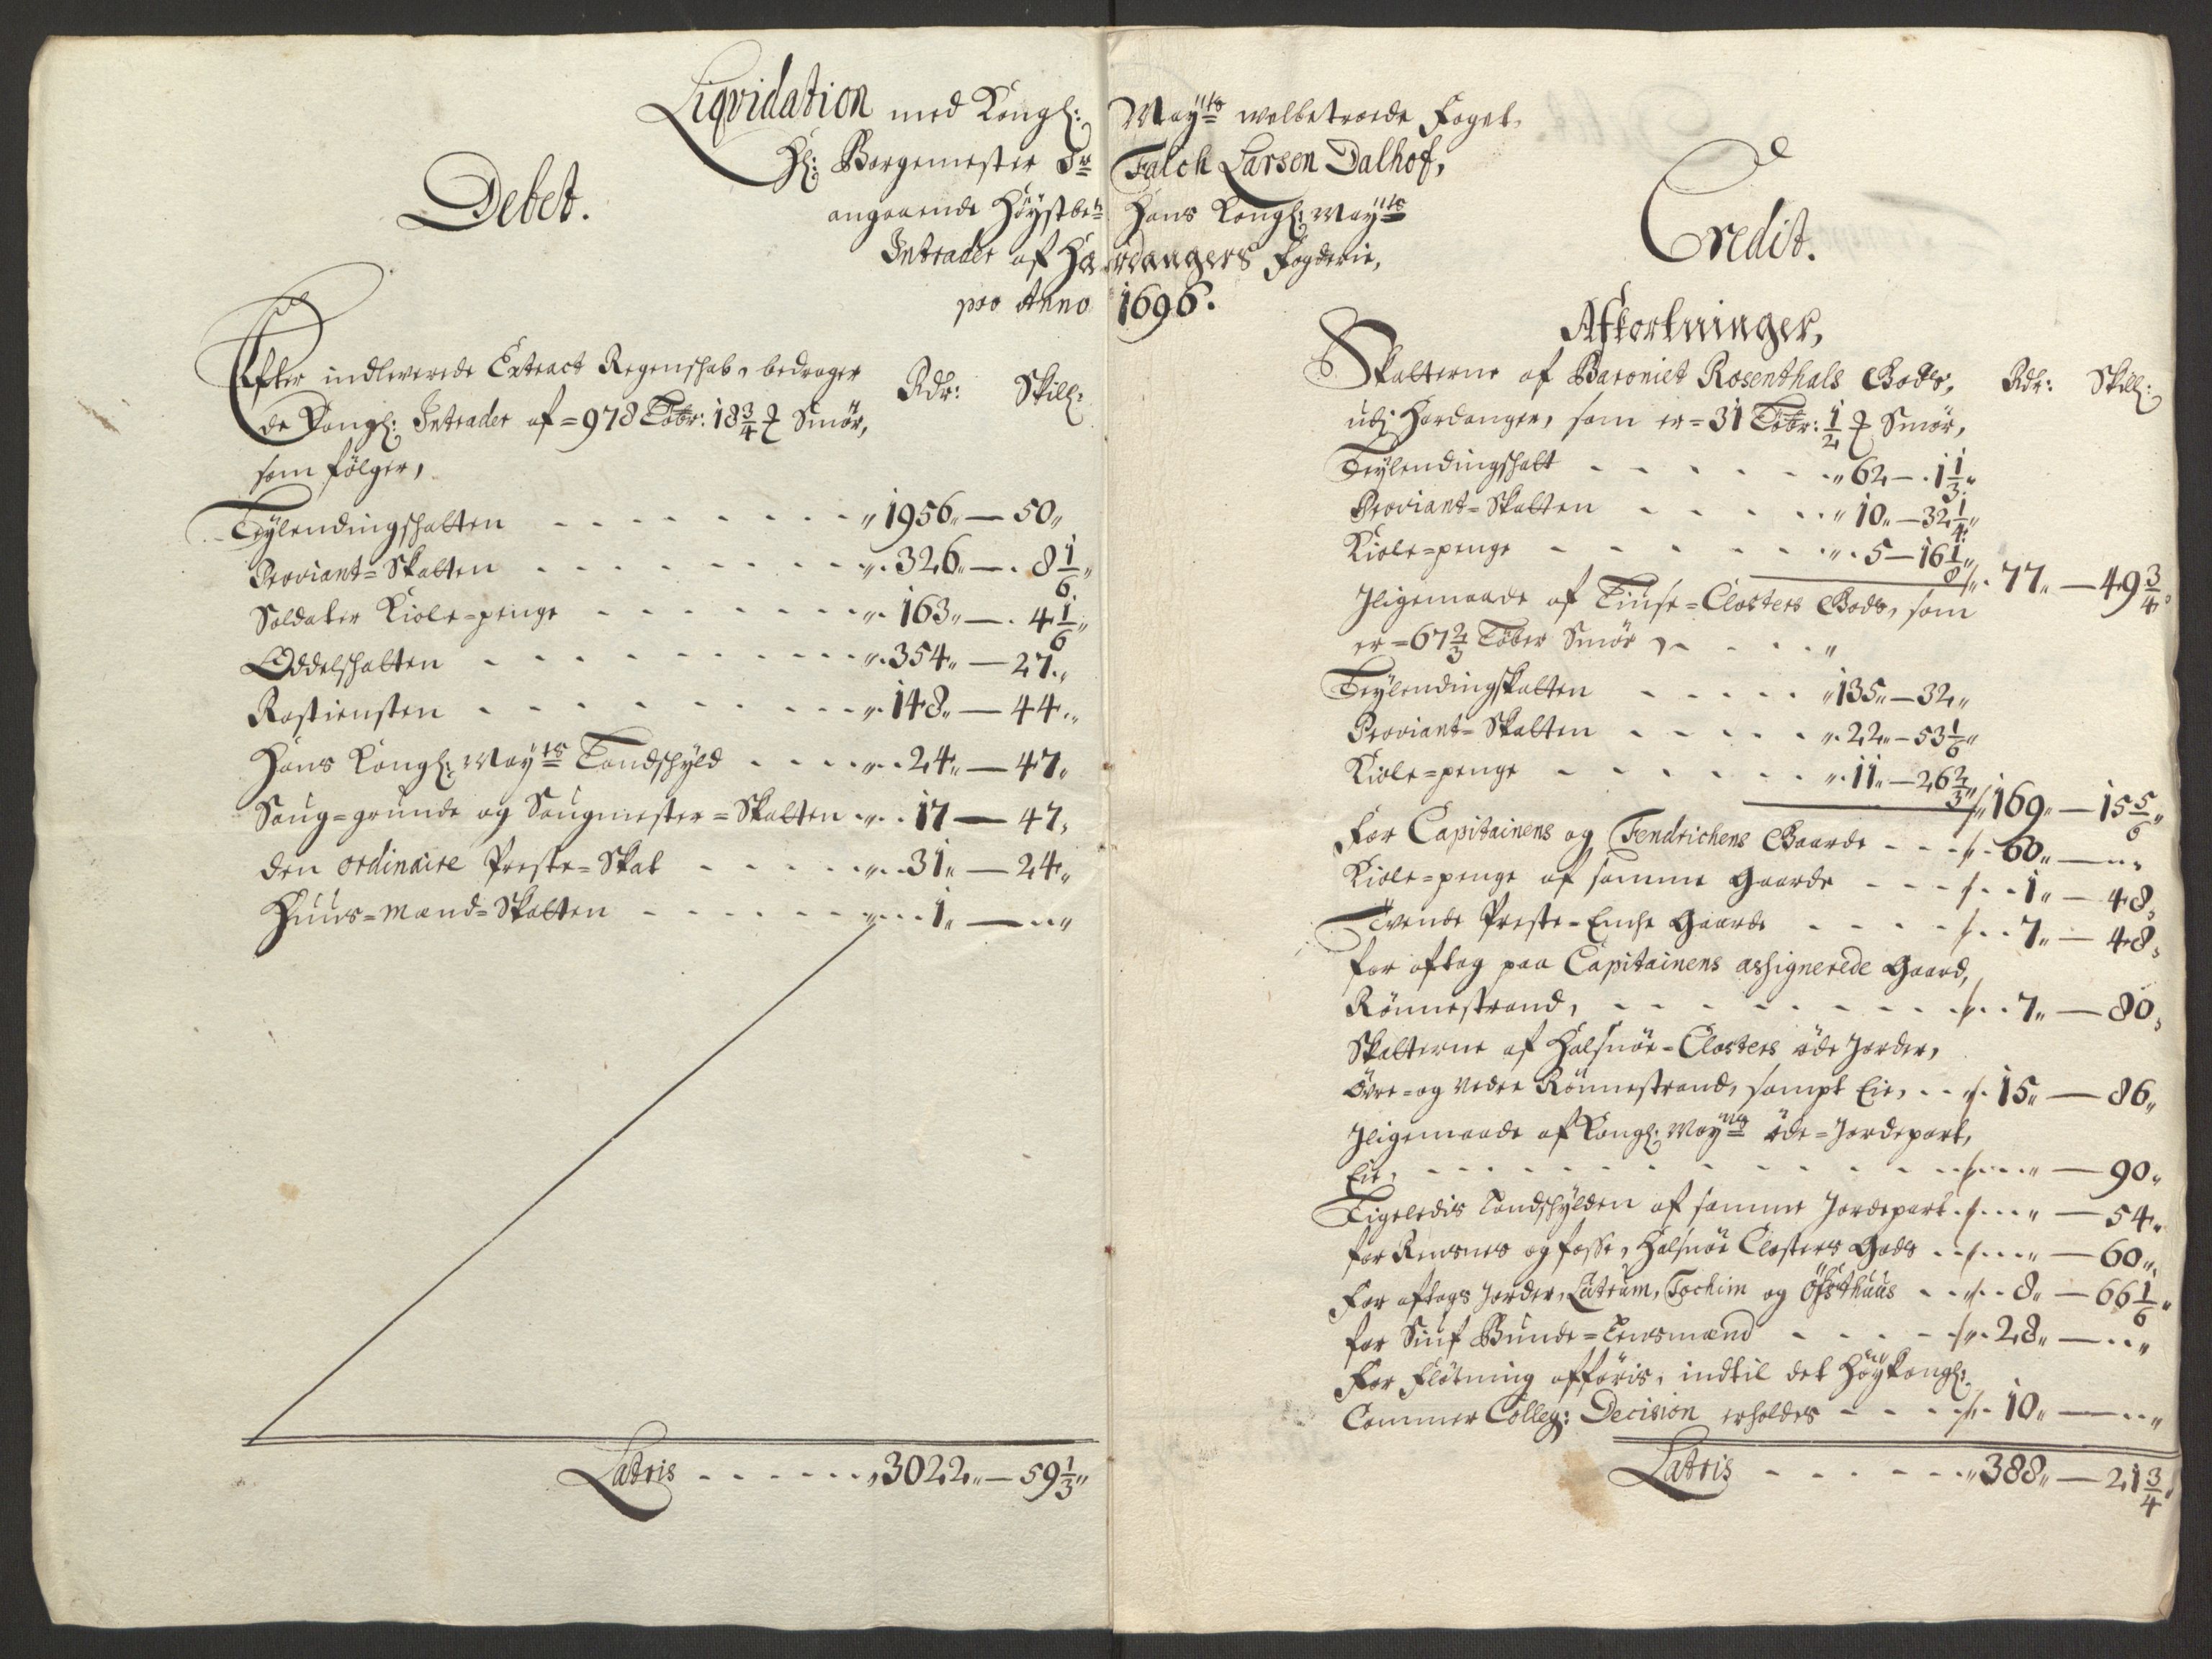 Liqvidation med Kongl: Mayts welbetroede Foget,
Hl: Borgemester Sr Falch Larsen Dalhof,
angaaende Höystbete Hans Kongl: Mayts
Intrader af Hardangers Fogderie,
pro Anno 1696.
Debet.
Efter indleverede Extract Regenschab, bedrager
de Kongl: Intrader af = 978 Løbr: 18 3/4 Smör,
som fölger,
Rdr: Skill:
Leylendingschatten - - - 1956 — 50
Proviant-Skatten - - - 326 — 8 1/6
Soldater Kiole-penge - - - 163 — 4 1/6
Oddelschatten - - - 354 — 27
Rostiensten - - - 148 — 44
Hans Kongl: Mayts Landschyld - - - 24 — 47
Saug-grunde og Saugmester-Skatten - 17 — 47
den ordinaire Preste-Skat - - - 31 — 24
Huus-Mænd-Skatten - - - 1 — ..
Latris - - - 3022 — 59 1/3
Credit.
Afkortninger,
Skatterne af Baroniet Rosenthals Gods, Rdr: Skill:
udj Hardanger, som er = 31 Løbr: 1/2 Smör,
Leylendingschatt - - - 62 — 1 1/3
Proviant-Skatten - - - 10 — 32 1/4
Kiole-penge - - - 5 — 16 1/8 77 — 49 3/4
Jligemaade af Liuse-Closters Gods, som
er = 67 2/3 Løber Smör
Leylendingskatten - - - 135 — 32
Proviant-Skatten - - - 22 — 53 1/6
Kiole-penge - - - 11 — 26 2/3 169 — 15 5/6
For Capitainens og Fendrichens Gaarde - - - 60 — ..
Kiole-penge af samme Gaarde - - - 1 — 48
Tvende Preste-Enche Gaarde - - - 7 — 48
for aftag paa Capitainens assignerede Gaard,
Rönnestrand, - - - 7 — 80
Skatterne af Halsnöe-Closters øde Jorder,
Övre- og Nedre Rönnestrand, sampt Eie, - - 15 — 86
Jligemaade af Kongl: Mayts öde-Jordepart,
Eie, - - - — 90
Ligeledis Landschylden af samme Jordepart - - - — 54
for Reusnes og Fosse, Halsnöe Closters Gods - - - — 60
For aftags Jorder, Lutrum, Tochim og Ofsthuus - - 8 — 66 1/6
for Siuf Bunde-Lensmænd - - - 28 — ..
For Flötning afföris, indtil det Höykongl:
Cammer Colleg: Decision erholdes - - - 10 — ..
Latris - - - 388 — 21 3/4